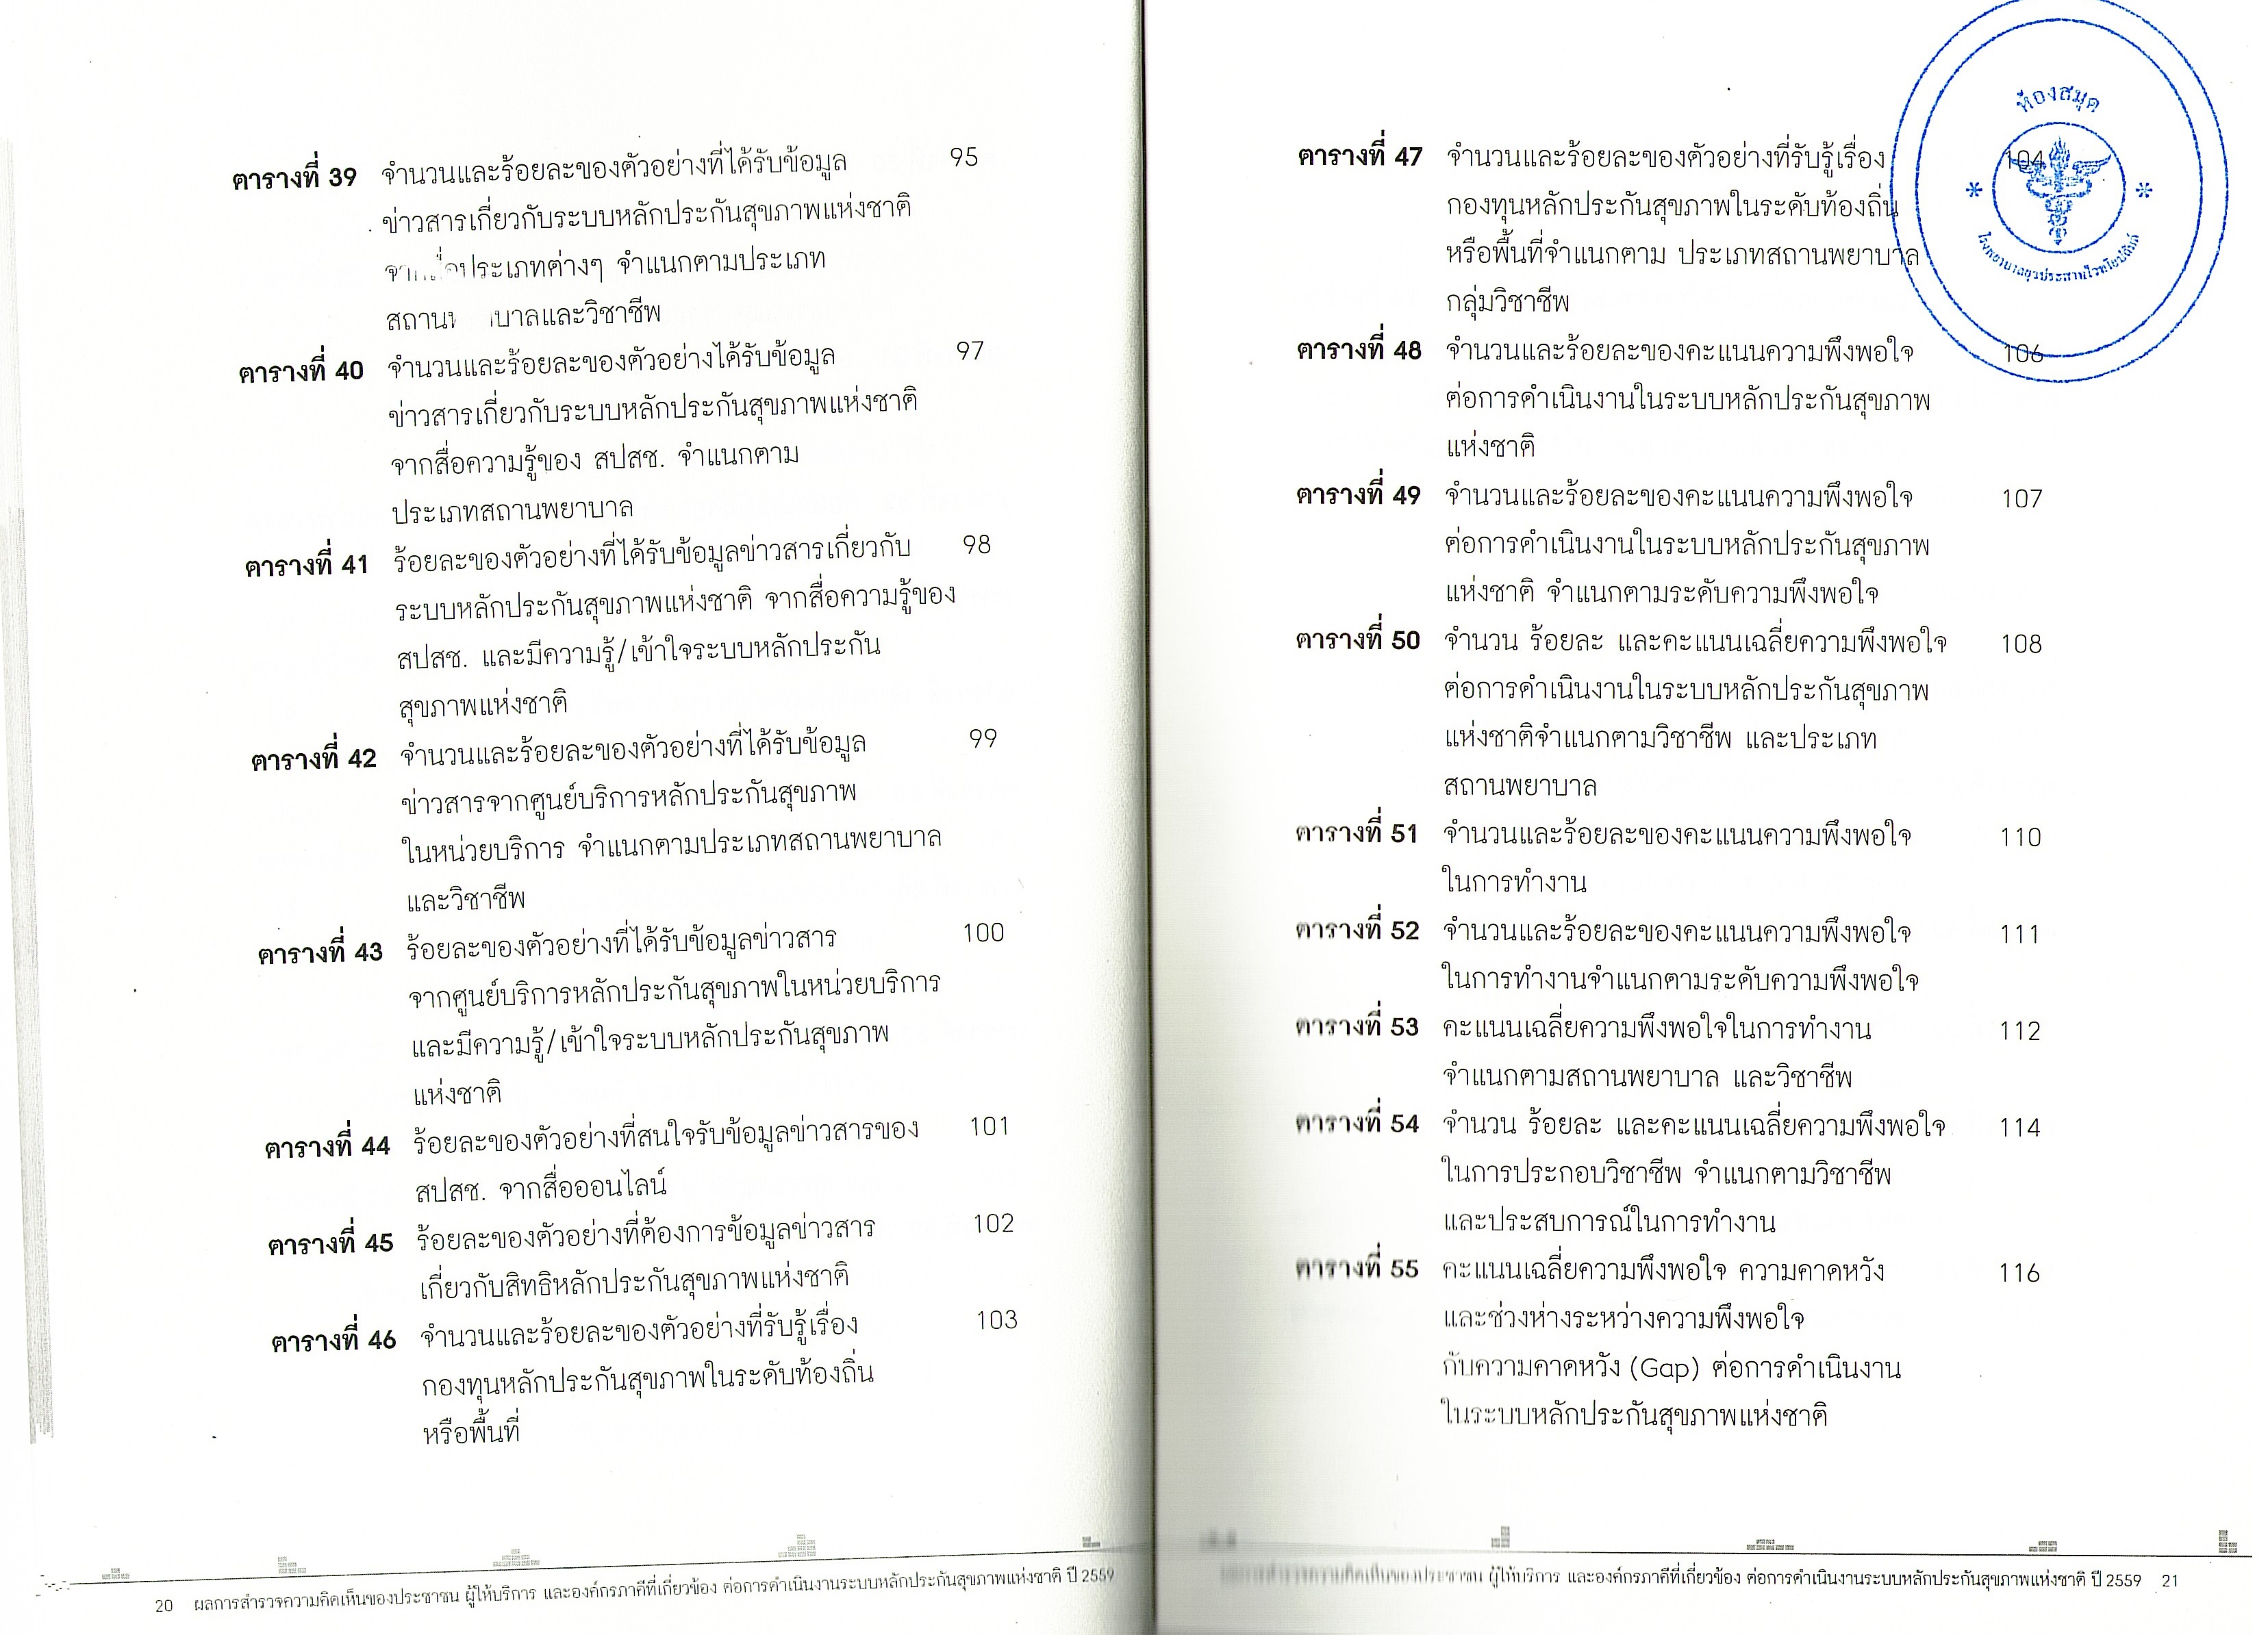 ตารางที่ 39 จำนวนและร้อยละของตัวอย่างที่ได้รับข้อมูล 95
ข่าวสารเกี่ยวกับระบบหลักประกันสุขภาพแห่งชาติ
จากสื่อประเภทต่างๆ จำแนกตามประเภท
สถานพยาบาลและวิชาชีพ
ตารางที่ 40 จำนวนและร้อยละของตัวอย่างได้รับข้อมูล 97
ข่าวสารเกี่ยวกับระบบหลักประกันสุขภาพแห่งชาติ
จากสื่อความรู้ของ สปสช. จำแนกตาม
ประเภทสถานพยาบาล
ตารางที่ 41 ร้อยละของตัวอย่างที่ได้รับข้อมูลข่าวสารเกี่ยวกับ 98
ระบบหลักประกันสุขภาพแห่งชาติ จากสื่อความรู้ของ
สปสช. และมีความรู้/เข้าใจระบบหลักประกัน
สุขภาพแห่งชาติ
ตารางที่ 42 จำนวนและร้อยละของตัวอย่างที่ได้รับข้อมูล 99
ข่าวสารจากศูนย์บริการหลักประกันสุขภาพ
ในหน่วยบริการ จำแนกตามประเภทสถานพยาบาล
และวิชาชีพ
ตารางที่ 43 ร้อยละของตัวอย่างที่ได้รับข้อมูลข่าวสาร 100
จากศูนย์บริการหลักประกันสุขภาพในหน่วยบริการ
และมีความรู้/เข้าใจระบบหลักประกันสุขภาพ
แห่งชาติ
ตารางที่ 44 ร้อยละของตัวอย่างที่สนใจรับข้อมูลข่าวสารของ 101
สปสช. จากสื่อออนไลน์
ตารางที่ 45 ร้อยละของตัวอย่างที่ต้องการข้อมูลข่าวสาร 102
เกี่ยวกับสิทธิหลักประกันสุขภาพแห่งชาติ
ตารางที่ 46 จำนวนและร้อยละของตัวอย่างที่รับรู้เรื่อง 103
กองทุนหลักประกันสุขภาพในระดับท้องถิ่น
หรือพื้นที่
20 ผลการสำรวจความคิดเห็นของประชาชน ผู้ให้บริการ และองค์กรภาคีที่เกี่ยวข้อง ต่อการดำเนินงานระบบหลักประกันสุขภาพแห่งชาติ ปี 2559
ห้องสมุด
โรงพยาบาลยุวประสาทไวทโยปถัมภ์
ตารางที่ 47 จำนวนและร้อยละของตัวอย่างที่รับรู้เรื่อง 104
กองทุนหลักประกันสุขภาพในระดับท้องถิ่น
หรือพื้นที่จำแนกตาม ประเภทสถานพยาบาล
กลุ่มวิชาชีพ
ตารางที่ 48 จำนวนและร้อยละของคะแนนความพึงพอใจ 106
ต่อการดำเนินงานในระบบหลักประกันสุขภาพ
แห่งชาติ
ตารางที่ 49 จำนวนและร้อยละของคะแนนความพึงพอใจ 107
ต่อการดำเนินงานในระบบหลักประกันสุขภาพ
แห่งชาติ จำแนกตามระดับความพึงพอใจ
ตารางที่ 50 จำนวน ร้อยละ และคะแนนเฉลี่ยความพึงพอใจ 108
ต่อการดำเนินงานในระบบหลักประกันสุขภาพ
แห่งชาติจำแนกตามวิชาชีพ และประเภท
สถานพยาบาล
ตารางที่ 51 จำนวนและร้อยละของคะแนนความพึงพอใจ 110
ในการทำงาน
ตารางที่ 52 จำนวนและร้อยละของคะแนนความพึงพอใจ 111
ในการทำงานจำแนกตามระดับความพึงพอใจ
ตารางที่ 53 คะแนนเฉลี่ยความพึงพอใจในการทำงาน 112
จำแนกตามสถานพยาบาล และวิชาชีพ
ตารางที่ 54 จำนวน ร้อยละ และคะแนนเฉลี่ยความพึงพอใจ 114
ในการประกอบวิชาชีพ จำแนกตามวิชาชีพ
และประสบการณ์ในการทำงาน
ตารางที่ 55 คะแนนเฉลี่ยความพึงพอใจ ความคาดหวัง 116
และช่วงห่างระหว่างความพึงพอใจ
กับความคาดหวัง (Gap) ต่อการดำเนินงาน
ในระบบหลักประกันสุขภาพแห่งชาติ
ผลการสำรวจความคิดเห็นของประชาชน ผู้ให้บริการ และองค์กรภาคีที่เกี่ยวข้อง ต่อการดำเนินงานระบบหลักประกันสุขภาพแห่งชาติ ปี 2559 21